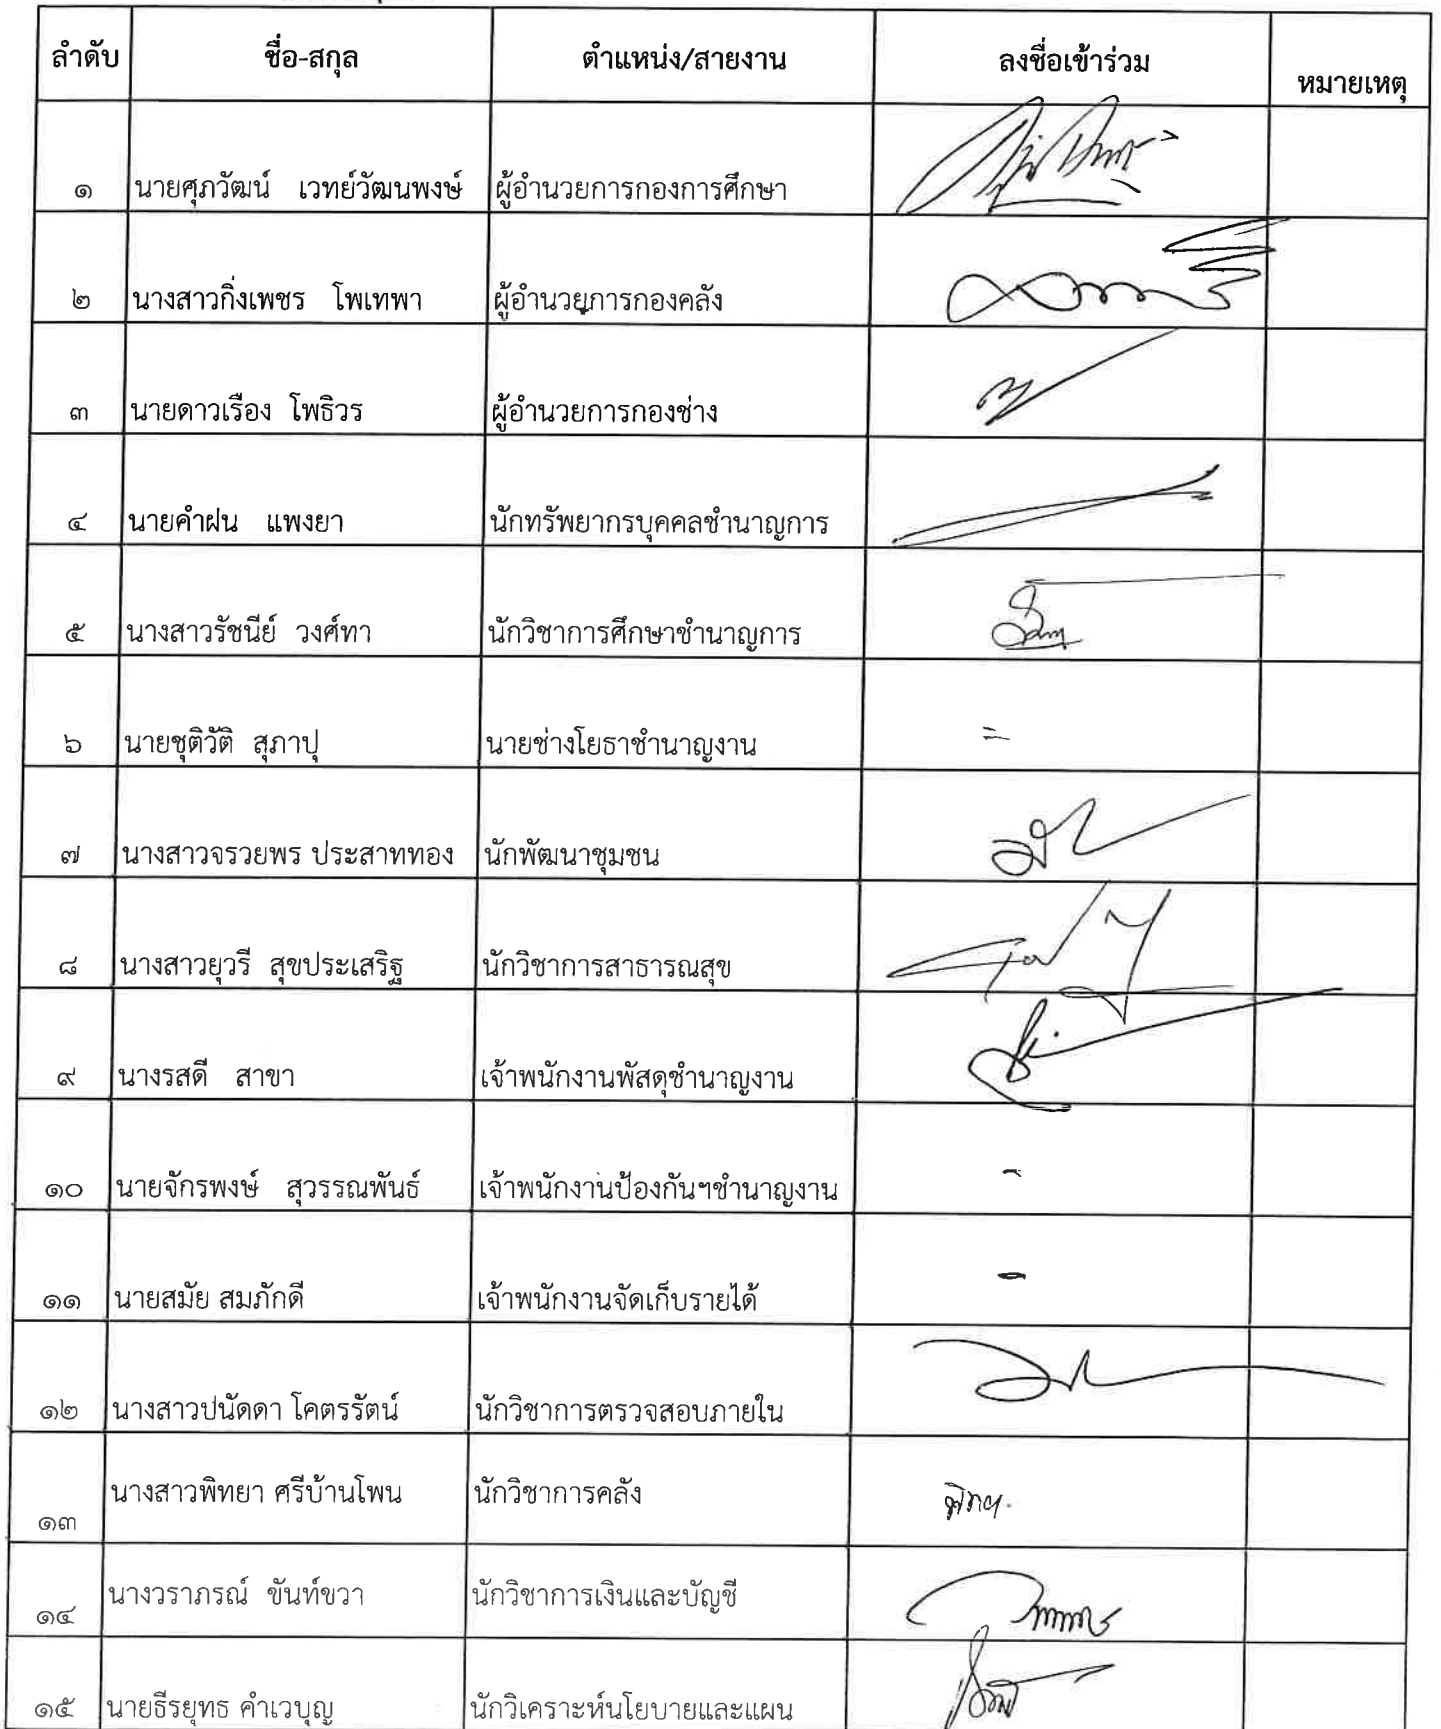 ลำดับ ชื่อ-สกุล ตำแหน่ง/สายงาน ลงชื่อเข้าร่วม หมายเหตุ
๑ นายศุภวัฒน์ เวทย์วัฒนพงษ์ ผู้อำนวยการกองการศึกษา
๒ นางสาวกิ่งเพชร โพเทพา ผู้อำนวยการกองคลัง
๓ นายดาวเรือง โพธิวร ผู้อำนวยการกองช่าง
๔ นายคำฝน แพงยา นักทรัพยากรบุคคลชำนาญการ
๕ นางสาวรัชนีย์ วงศ์ทา นักวิชาการศึกษาชำนาญการ
๖ นายชุติวัติ สุภาปุ นายช่างโยธาชำนาญงาน
๗ นางสาวจรวยพร ประสาททอง นักพัฒนาชุมชน
๘ นางสาวยุวรี สุขประเสริฐ นักวิชาการสาธารณสุข
๙ นางรสดี สาขา เจ้าพนักงานพัสดุชำนาญงาน
๑๐ นายจักรพงษ์ สุวรรณพันธ์ เจ้าพนักงานป้องกันฯชำนาญงาน -
๑๑ นายสมัย สมภักดี เจ้าพนักงานจัดเก็บรายได้ -
๑๒ นางสาวปนัดดา โคตรรัตน์ นักวิชาการตรวจสอบภายใน
๑๓ นางสาวพิทยา ศรีบ้านโพน นักวิชาการคลัง
๑๔ นางวราภรณ์ ขันท์ขวา นักวิชาการเงินและบัญชี
๑๕ นายธีรยุทธ คำเวบุญ นักวิเคราะห์นโยบายและแผน